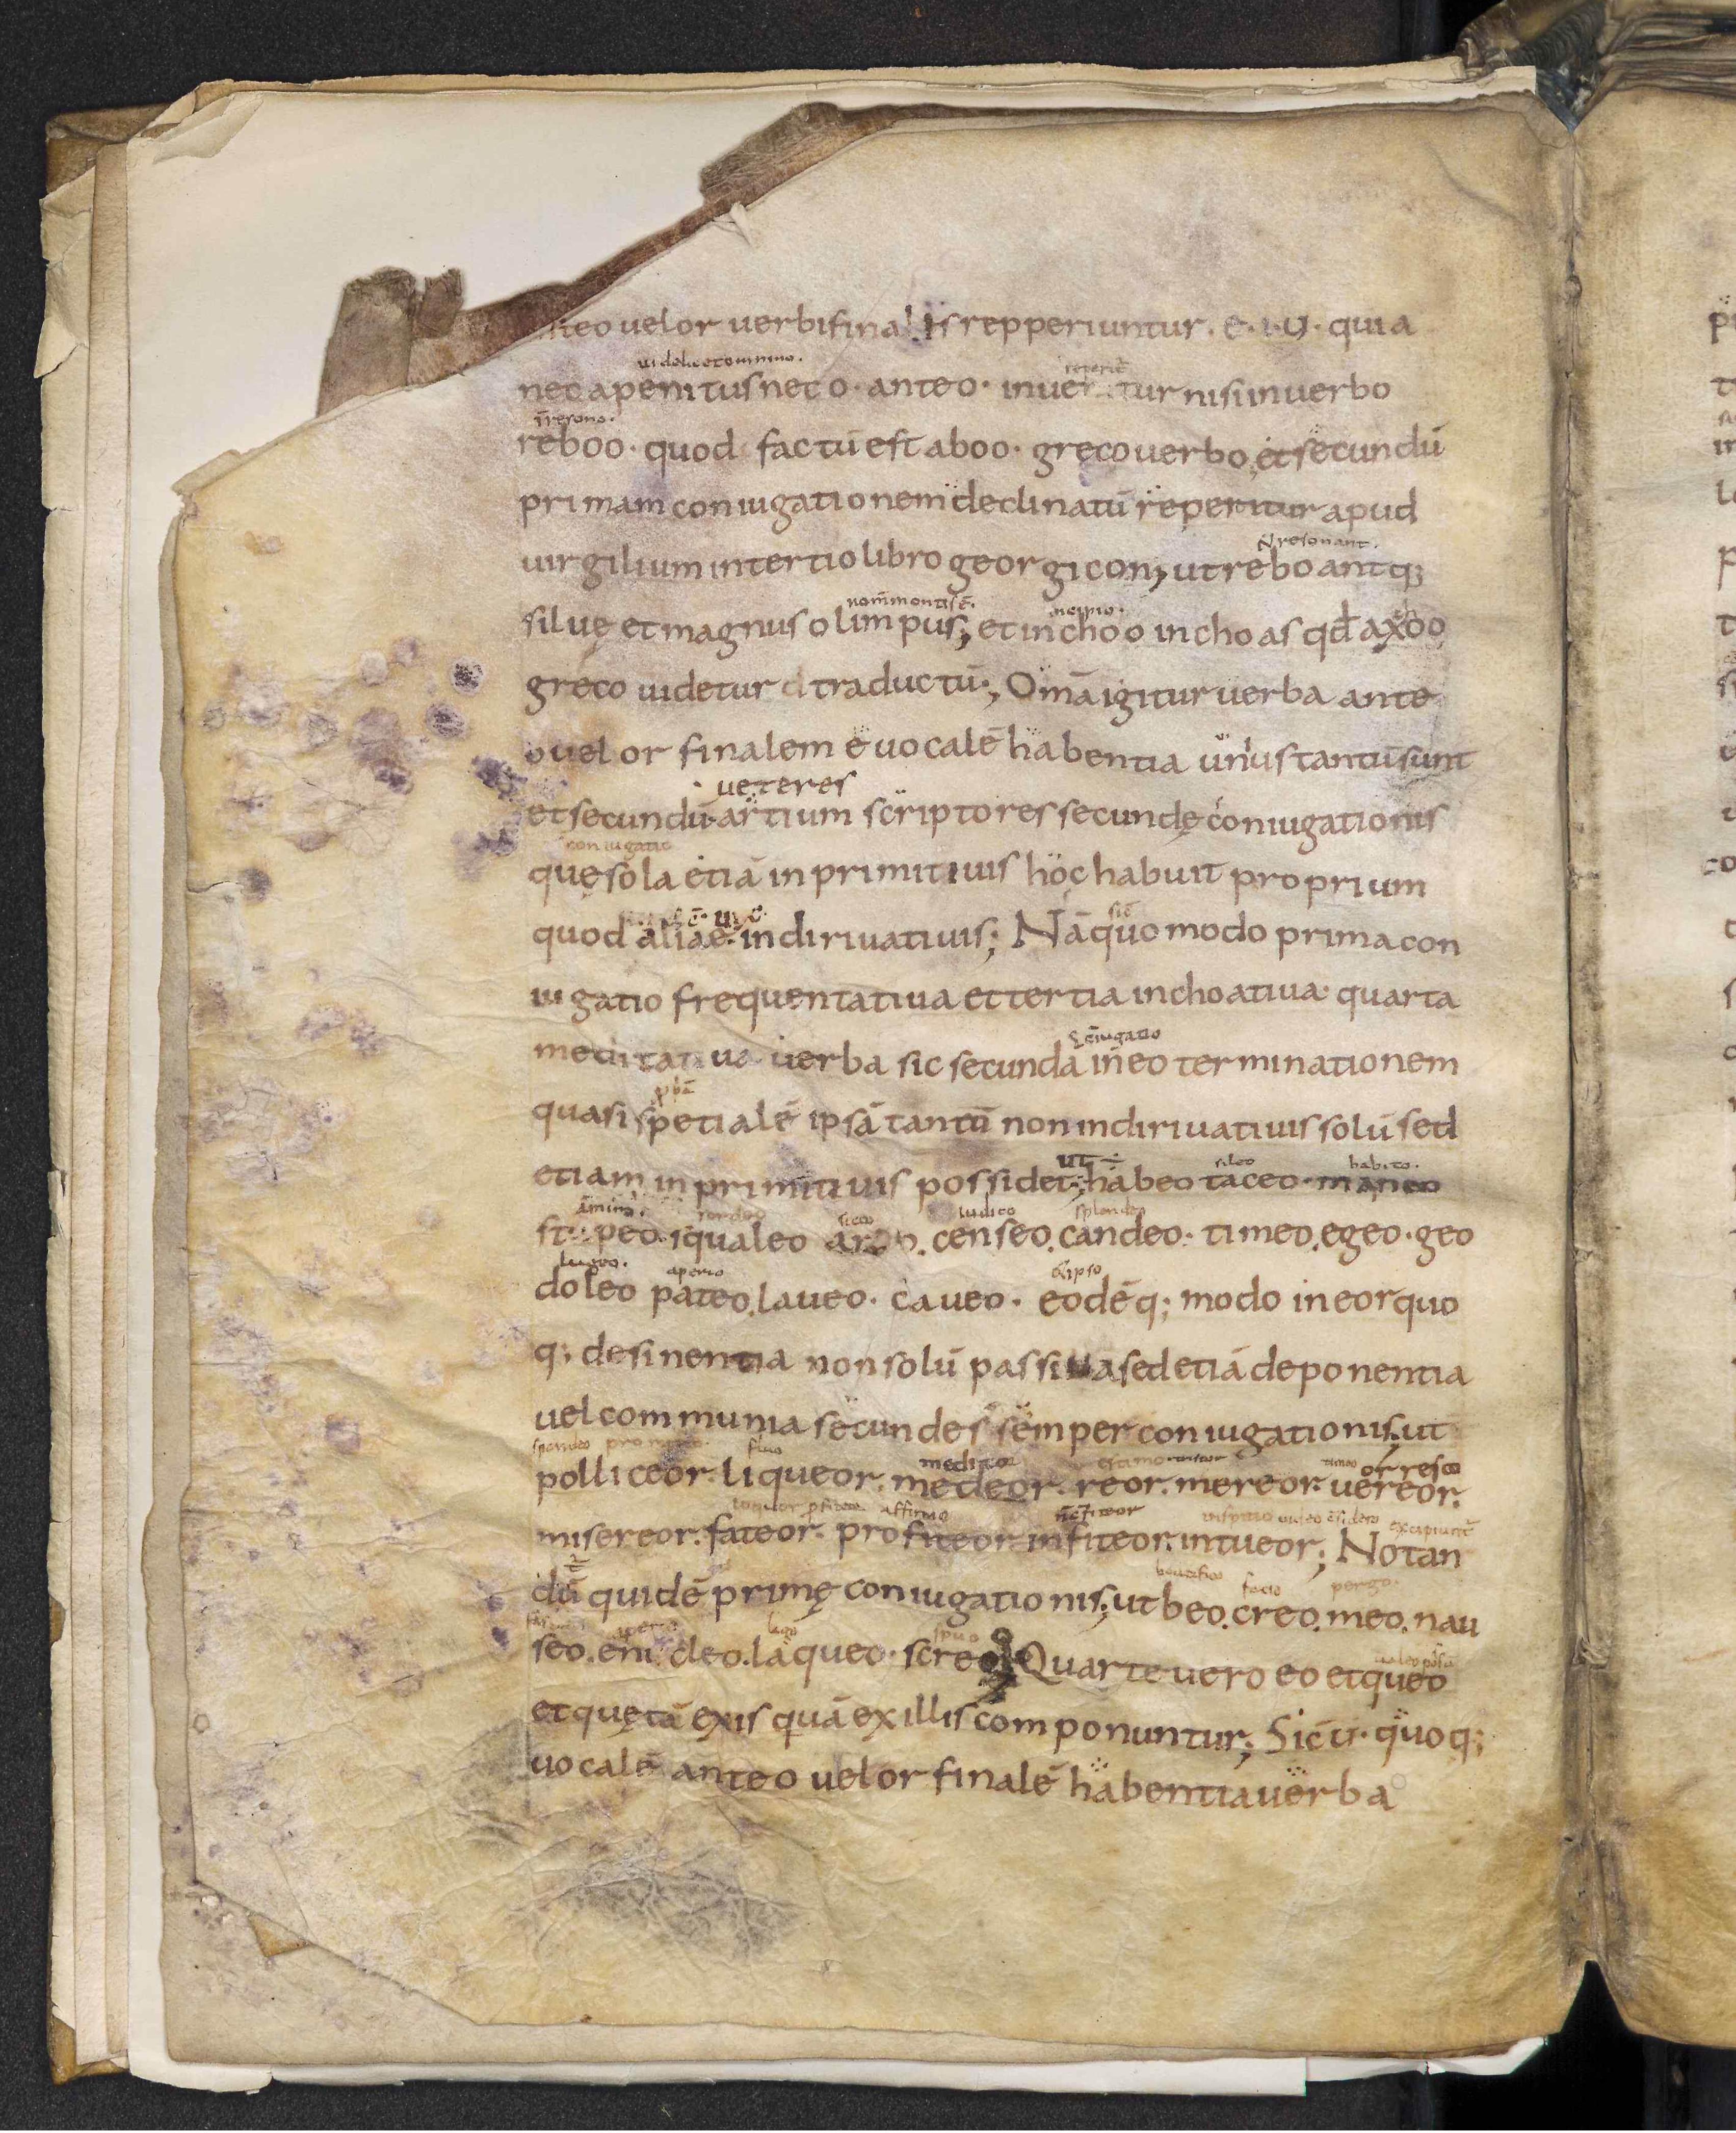 anteo uel or uerbi finalis repperiuntur. e. i. u. quia
uidelicet omnino.
nec a penitus nec o. ante o. inueritur nisi in uerbo
resono.
reboo. quod factū est a boo. greco uerbo et secundū
primam coniugationem declinatū reperitur apud
uirgilium in tertio libro georgicon; ut reboantq;
resonant.
siluę et magnus olimpus; et inchoo inchoas qđ axoo
greco uidetur traductū; Omā igitur uerba ante
o uel or finalem e uocalē habentia unius tantū sunt
ueteres
et secundū artium scriptores secundę coniugationis
coniugatio
quę sola etiā in primitiuis hoc habuit proprium
quod aliae in diriuatiuis; Nā quomodo prima con
iugatio frequentatiua et tertia inchoatiua quarta
coniugatio
meditatiua uerba sic secunda in eo terminationem
quasi spetialē ipsā tantū non in diriuatiuis solū sed
ut sileo habito.
etiam in primitiuis possidet; habeo taceo. maneo
sordeo sicco iudico splendeo
stupeo. squaleo areo. censeo. candeo. timeo. egeo. geo
lugeo. aperio
doleo pateo. laueo. caueo. eodēq; modo in eor quo
q; desinentia non solū passiua sed etiā deponentia
uel communia secunde s semper coniugationis. ut
fluo meditor timeo orresco
polliceor. liqueor. medeor. reor. mereor. uereor.
affirmo
misereor. fateor. profiteor. infiteor. intueor; Notan
beatifico facio pergo
dū quidē primę coniugationis; ut beo. creo. meo. nau
aperio ligo spuo
seo. enucleo. laqueo. screo; Quarte uero eo et queo
et quę tā ex is quā ex illis componuntur; Sic u. quoq;
uocalē ante o uel or finalē habentia uerba